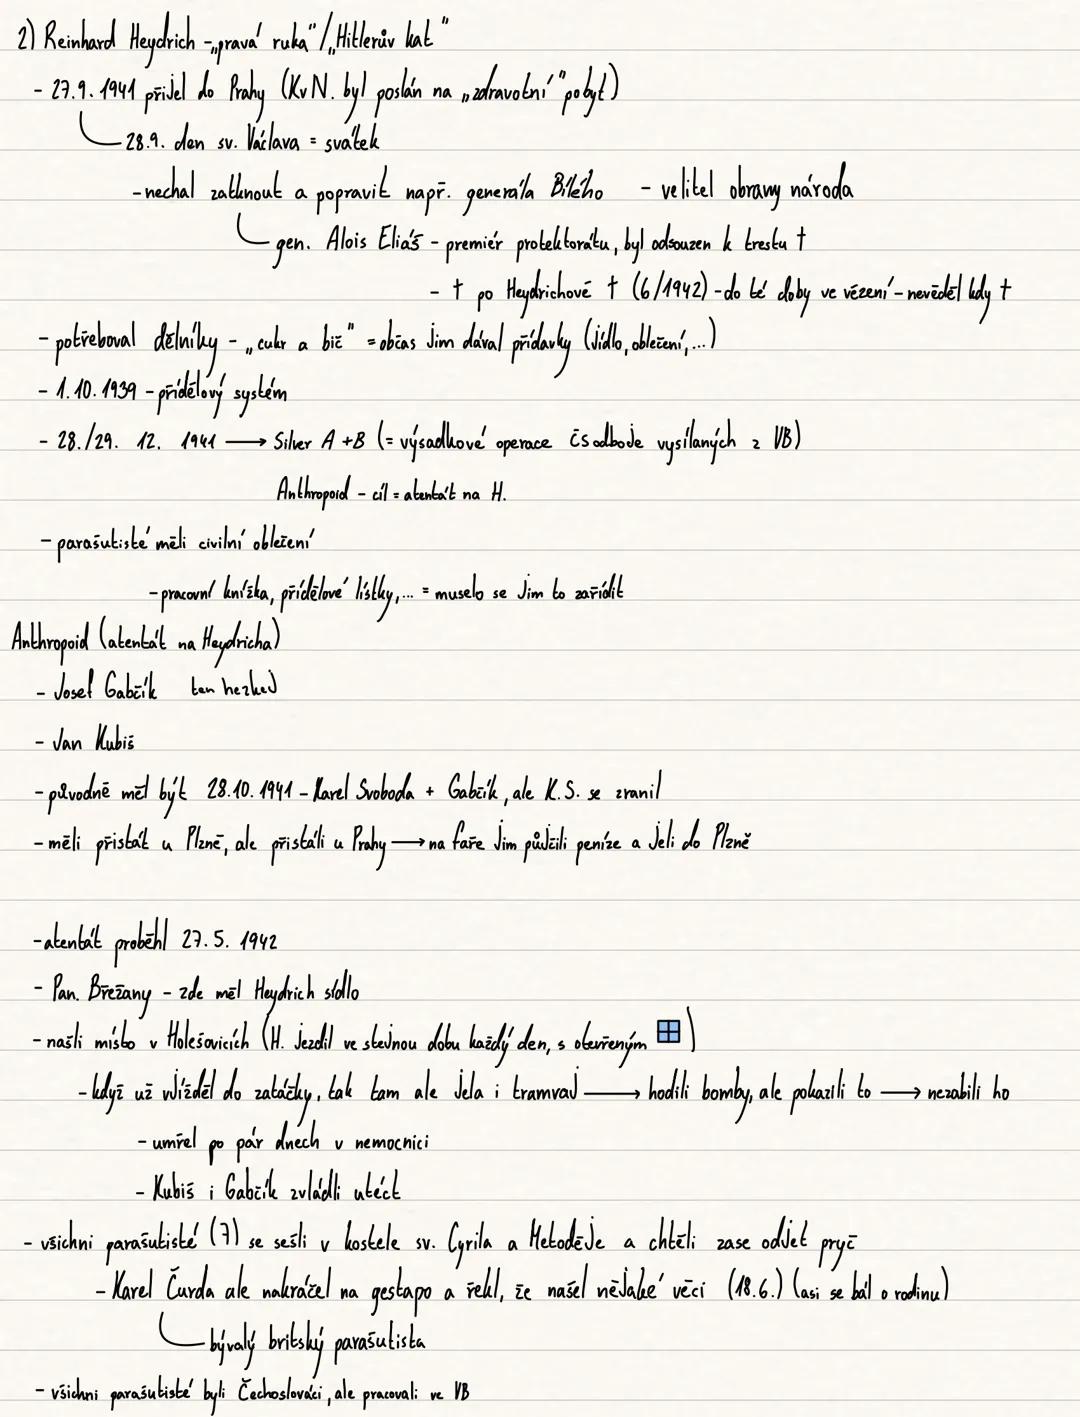 2) Reinhard Heydrich - „pravá ruka" / „Hitlerův kat"
- 27.9.1941 přijel do Prahy (KvN. byl poslán na „zdravotní" pobyt)
28.9. den sv. Václava = svátek
- nechal zatknout a popravit např. generála Bílého - velitel obrany národa
gen. Alois Eliáš - premiér protektorátu, byl odsouzen k trestu †
- † po Heydrichově † (6/1942) - do té doby ve vězení - nevěděl kdy †
- potřeboval dělníky - „cukr a bič" = občas jim dával přídavky (jídlo, oblečení,...)
- 1.10.1939 - přídělový systém
- 28./29. 12. 1941 → Silver A + B (= výsadkové operace čs odboje vysílaných z VB)
Anthropoid - cíl = atentát na H.
- parašutisté měli civilní oblečení
- pracovní knížka, přídělové lístky,... = muselo se jim to zařídit
Anthropoid (atentát na Heydricha)
- Josef Gabčík ten hezkej
- Jan Kubiš
- původně měl být 28.10.1941 - Karel Svoboda + Gabčík, ale K.S. se zranil
- měli přistát u Plzně, ale přistáli u Prahy → na faře jim půjčili peníze a jeli do Plzně
- atentát proběhl 27.5. 1942
- Pan. Břežany - zde měl Heydrich sídlo
- našli místo v Holešovicích (H. jezdil ve stejnou dobu každý den, s otevřeným 🪟)
- když už vjížděl do zatáčky, tak tam ale jela i tramvaj → hodili bomby, ale pokazili to → nezabili ho
- umřel po pár dnech v nemocnici
- Kubiš i Gabčík zvládli utéct
- všichni parašutisté (7) se sešli v kostele sv. Cyrila a Metoděje a chtěli zase odjet pryč
- Karel Čurda ale nakráčel na gestapo a řekl, že našel nějaké věci (18.6.) (asi se bál o rodinu)
bývalý britský parašutista
- všichni parašutisté byli Čechoslováci, ale pracovali ve VB